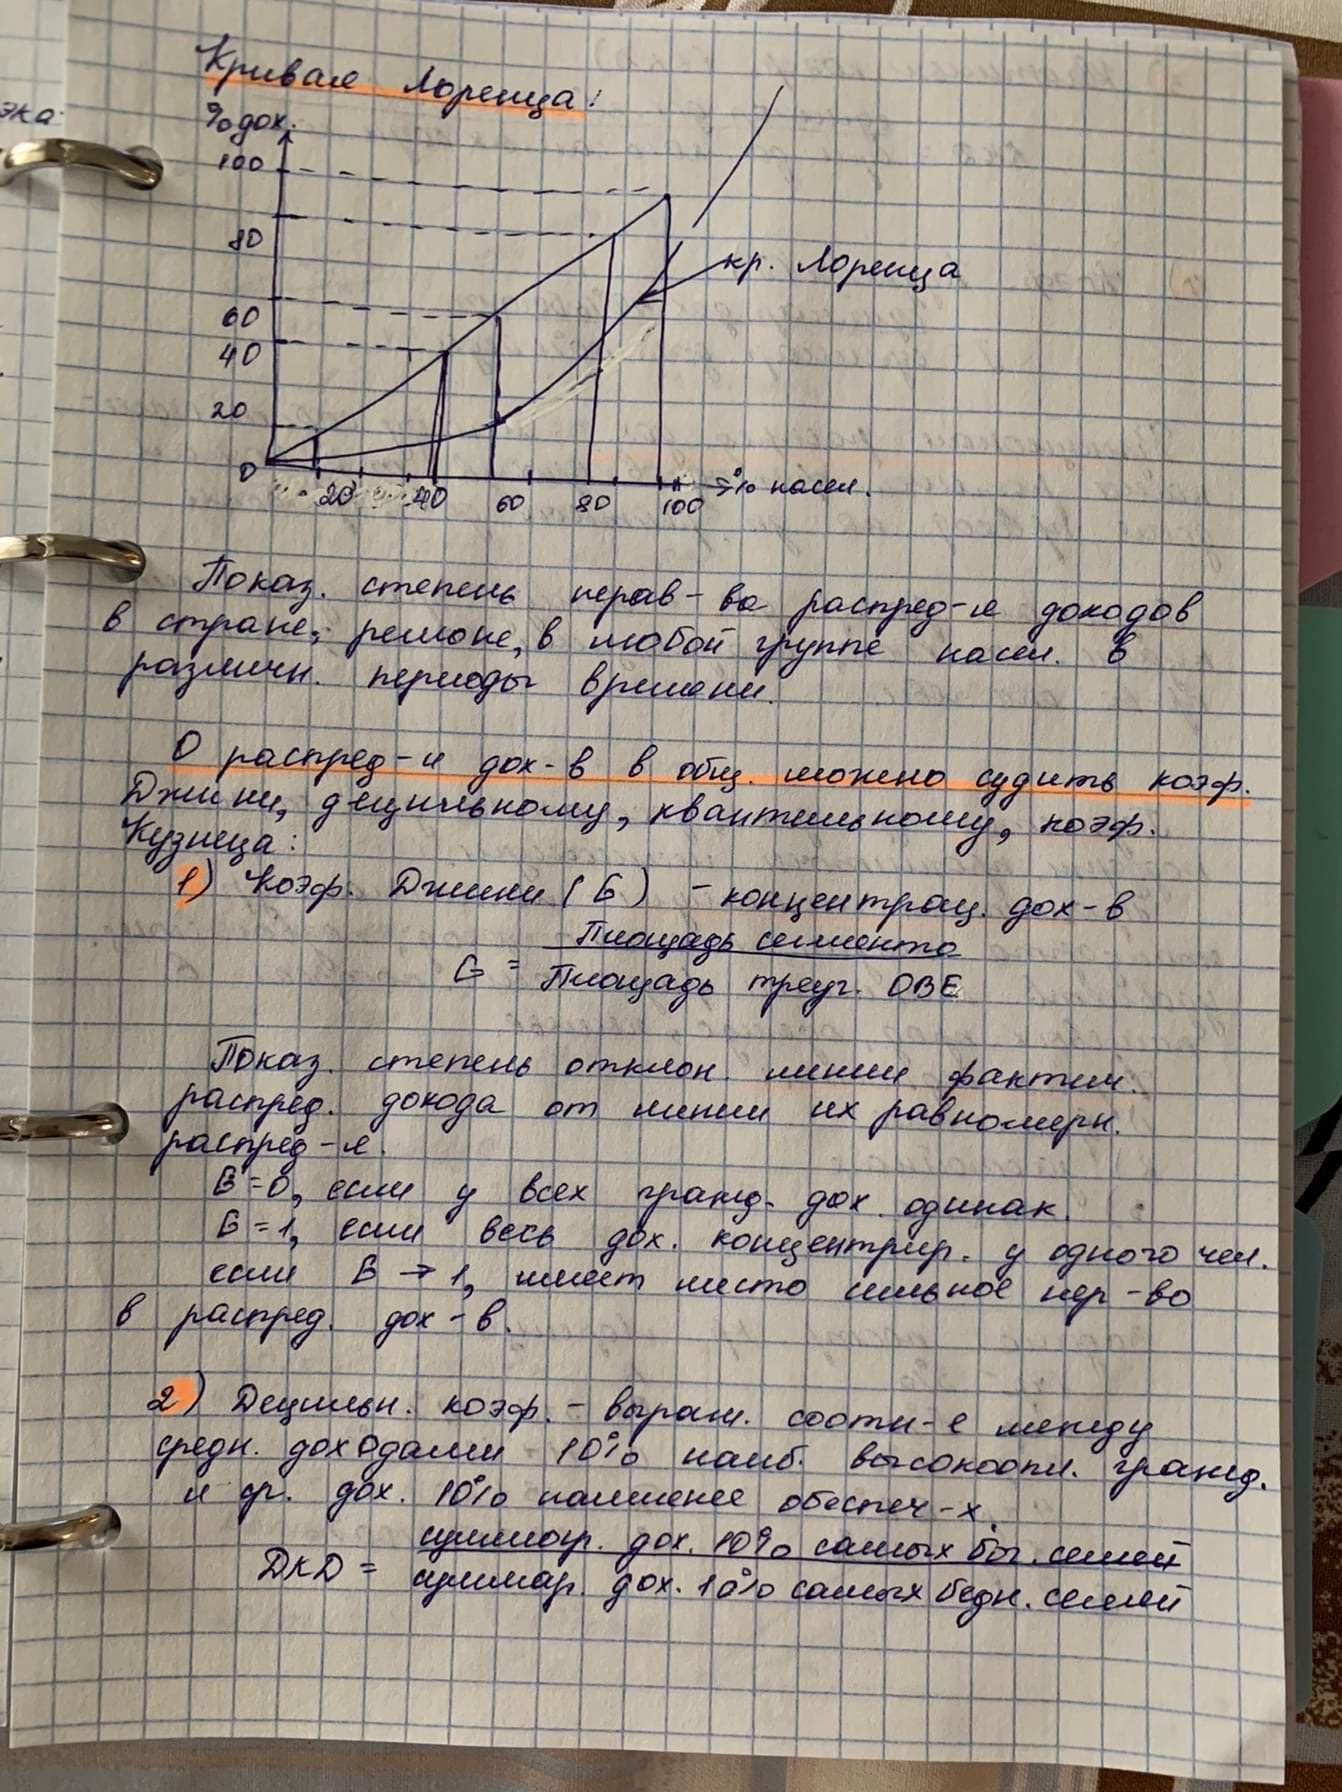 эка.
Кривая Лоренца:
% дох.
100
80
кр. Лоренца
60
40
20
0
20 40 60 80 100 % насел.
Показ. степень нерав-ва распред-я доходов
в стране, регионе, в любой группе насел. в
различн. периоды времени.
О распред-и дох-в в общ. можно судить коэф.
Джини, децильному, квантильному, коэф.
Кузнеца:
1) Коэф. Джини (G) - концентрац. дох-в
G = Площадь сегмента
Площадь треуг. OBE
Показ. степень отклон. линии фактич.
распред. дохода от линии их равномерн.
распред-я.
G=0, если у всех гражд. дох. одинак.
G=1, если весь дох. концентрир. у одного чел.
если G → 1, имеет место сильное нер-во
в распред. дох-в.
2) Децильн. коэф. - выраж. соотн-е между
средн. доходами 10% наиб. высокоопл. гражд.
и ср. дох. 10% наименее обеспеч-х.
ДКД = суммар. дох. 10% самых бог. семей
суммар. дох. 10% самых бедн. семей